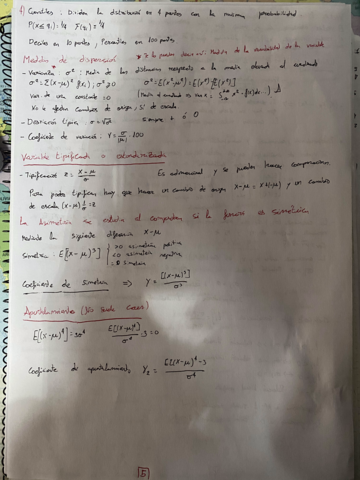 f) Cuantiles: Dividen la distribución en 4 partes con la misma probabilidad
P(X≤q₁) = 1/4 F(q₁) = 1/4
Deciles en 10 partes, Percentiles en 100 partes
Medidas de dispersión
- Varianza σ²: Media de las distancias respecto a la media elevado al cuadrado
σ² = Σ(x-μ)² f(x); σ² ≥ 0
Var de una constante = 0
No le afectan cambios de origen, sí de escala
- Desviación típica, σ = √σ² siempre + ó 0
- Coeficiente de variación: V = σ/μ · 100
Variable tipificada o estandarizada
- Tipificación: Z = x-μ/σ Es adimensional y se pueden hacer comparaciones
Para poder tipificar hay que hacer un cambio de origen x-μ = x+(-μ) y un cambio
de escala (x-μ) 1/σ = Z
La asimetría se estudia al comprobar si la función es simétrica
Mediante la siguiente diferencia x-μ
Simetría: E[(x-μ)³]
>0 asimetría positiva
<0 asimetría negativa
=0 simetría
Coeficiente de simetría ⇒ γ = [(x-μ)³]/σ³
Apuntalamientos
E[(x-μ)⁴] = 3σ⁴ E[(x-μ)⁴]/σ⁴ - 3 = 0
Coeficiente de apuntalamiento γ₂ = E[(x-μ)⁴-3/σ⁴
5